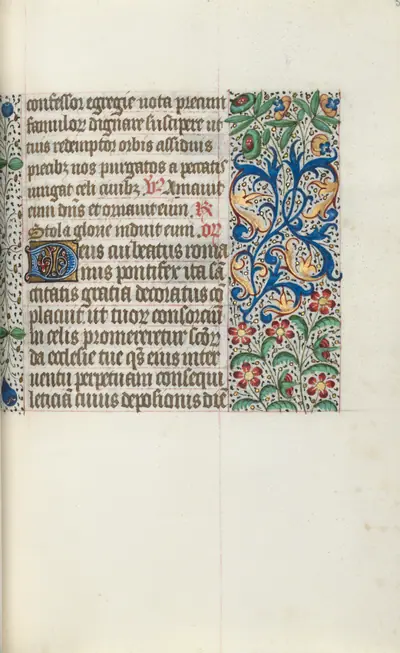 confessor egregie uota precum
famulor dignare suscipere ut
tuis redemptor orbis assiduis
precibz nos purgatos a peccatis
iungat celi ciuibz. V. Amauit
eum dns et ornauit eum. R.
Stola glorie induit eum. or
Deus cui beatus roma
nus pontifex ita sa
ctitatis gratia decoratus co
placuit ut tuor consorciu
in celis promereretur scor
da ecclesie tue qs eius inter
uentu perpetuam consequi
leticia cuius depositionis die